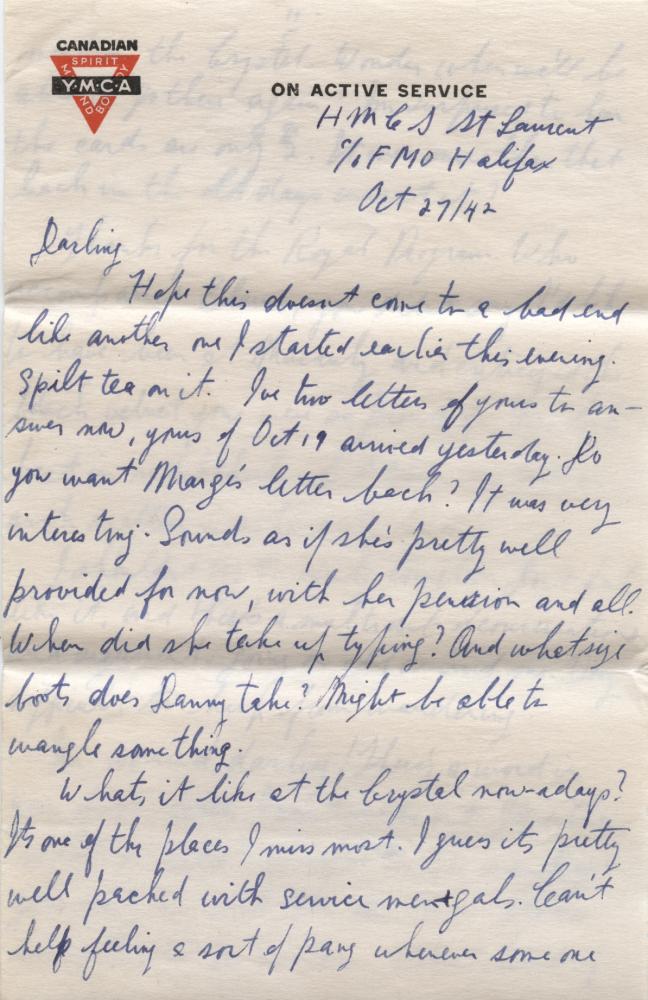 CANADIAN
SPIRIT
Y·M·C·A
MIND BODY
ON ACTIVE SERVICE
HMCS St Laurent
c/o FMO Halifax
Oct 27/42
Darling
Hope this doesnt come to a bad end
like another one I started earlier this evening.
Spilt tea on it. Ive two letters of yours to an-
swer now, yours of Oct 19 arrived yesterday. Do
you want Marge's letter back? It was very
interesting. Sounds as if she's pretty well
provided for now, with her pension and all.
When did she take up typing? And what size
boots does Danny take? Might be able to
wangle something.
Whats it like at the Crystal now-adays?
Its one of the places I miss most. I guess its pretty
well packed with service men + gals. Can't
help feeling a sort of pang whenever some one